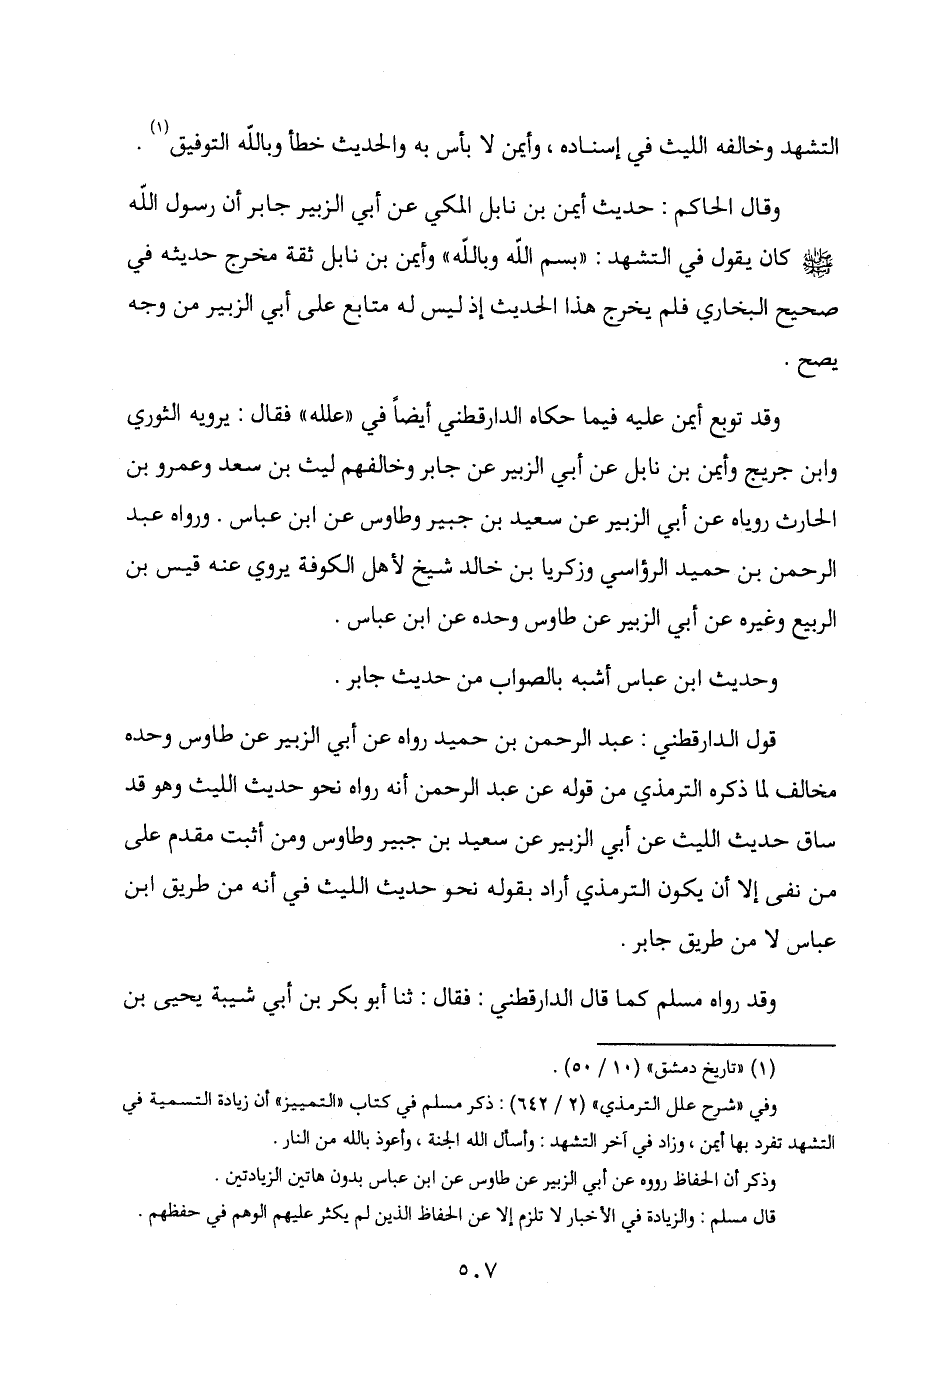 التشهد وخالفه الليث في إسناده ، وأيمن لا بأس به والحديث خطأ وبالله التوفيق(١) .
وقال الحاكم : حديث أيمن بن نابل المكي عن أبي الزبير جابر أن رسول الله
ﷺ كان يقول في التشهد : «بسم الله وبالله» وأيمن بن نابل ثقة مخرج حديثه في
صحيح البخاري فلم يخرج هذا الحديث إذ ليس له متابع على أبي الزبير من وجه
يصح .
وقد توبع أيمن عليه فيما حكاه الدارقطني أيضاً في «علله» فقال : يرويه الثوري
وابن جريج وأيمن بن نابل عن أبي الزبير عن جابر وخالفهم ليث بن سعد وعمرو بن
الحارث روياه عن أبي الزبير عن سعيد بن جبير وطاوس عن ابن عباس . ورواه عبد
الرحمن بن حميد الرؤاسي وزكريا بن خالد شيخ لأهل الكوفة يروي عنه قيس بن
الربيع وغيره عن أبي الزبير عن طاوس وحده عن ابن عباس .
وحديث ابن عباس أشبه بالصواب من حديث جابر .
قول الدارقطني : عبد الرحمن بن حميد رواه عن أبي الزبير عن طاوس وحده
مخالف لما ذكره الترمذي من قوله عن عبد الرحمن أنه رواه نحو حديث الليث وهو قد
ساق حديث الليث عن أبي الزبير عن سعيد بن جبير وطاوس ومن أثبت مقدم على
من نفى إلا أن يكون الترمذي أراد بقوله نحو حديث الليث في أنه من طريق ابن
عباس لا من طريق جابر .
وقد رواه مسلم كما قال الدارقطني : فقال : ثنا أبو بكر بن أبي شيبة يحيى بن
(١) «تاريخ دمشق» (١٠ / ٥٠) .
وفي «شرح علل الترمذي» (٢ / ٦٤٢) : ذكر مسلم في كتاب «التمييز» أن زيادة التسمية في
التشهد تفرد بها أيمن ، وزاد في آخر التشهد : وأسأل الله الجنة ، وأعوذ بالله من النار .
وذكر أن الحفاظ رووه عن أبي الزبير عن طاوس عن ابن عباس بدون هاتين الزيادتين .
قال مسلم : والزيادة في الأخبار لا تلزم إلا عن الحفاظ الذين لم يكثر عليهم الوهم في حفظهم .
٥٠٧